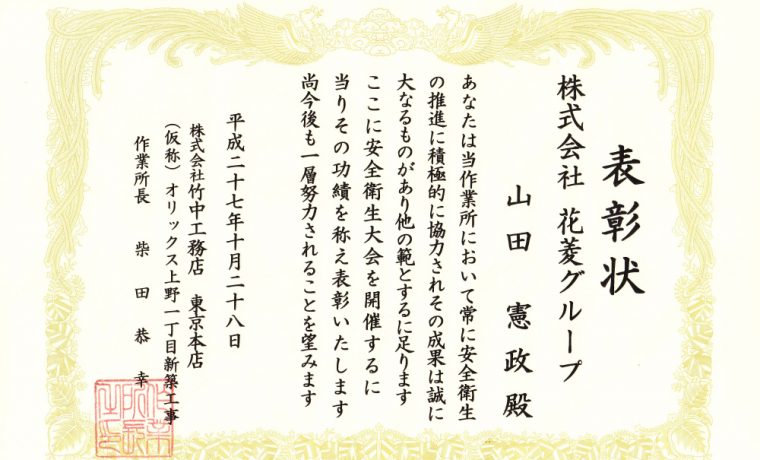 表彰状
株式会社 花菱グループ
山田 憲政 殿
あなたは当作業所において常に安全衛生
の推進に積極的に協力されその成果は誠に
大なるものがあり他の範とするに足ります
ここに安全衛生大会を開催するに
当りその功績を称え表彰いたします
尚今後も一層努力されることを望みます
平成二十七年十月二十八日
株式会社竹中工務店 東京本店
(仮称)オリックス上野一丁目新築工事
作業所長 柴田恭幸